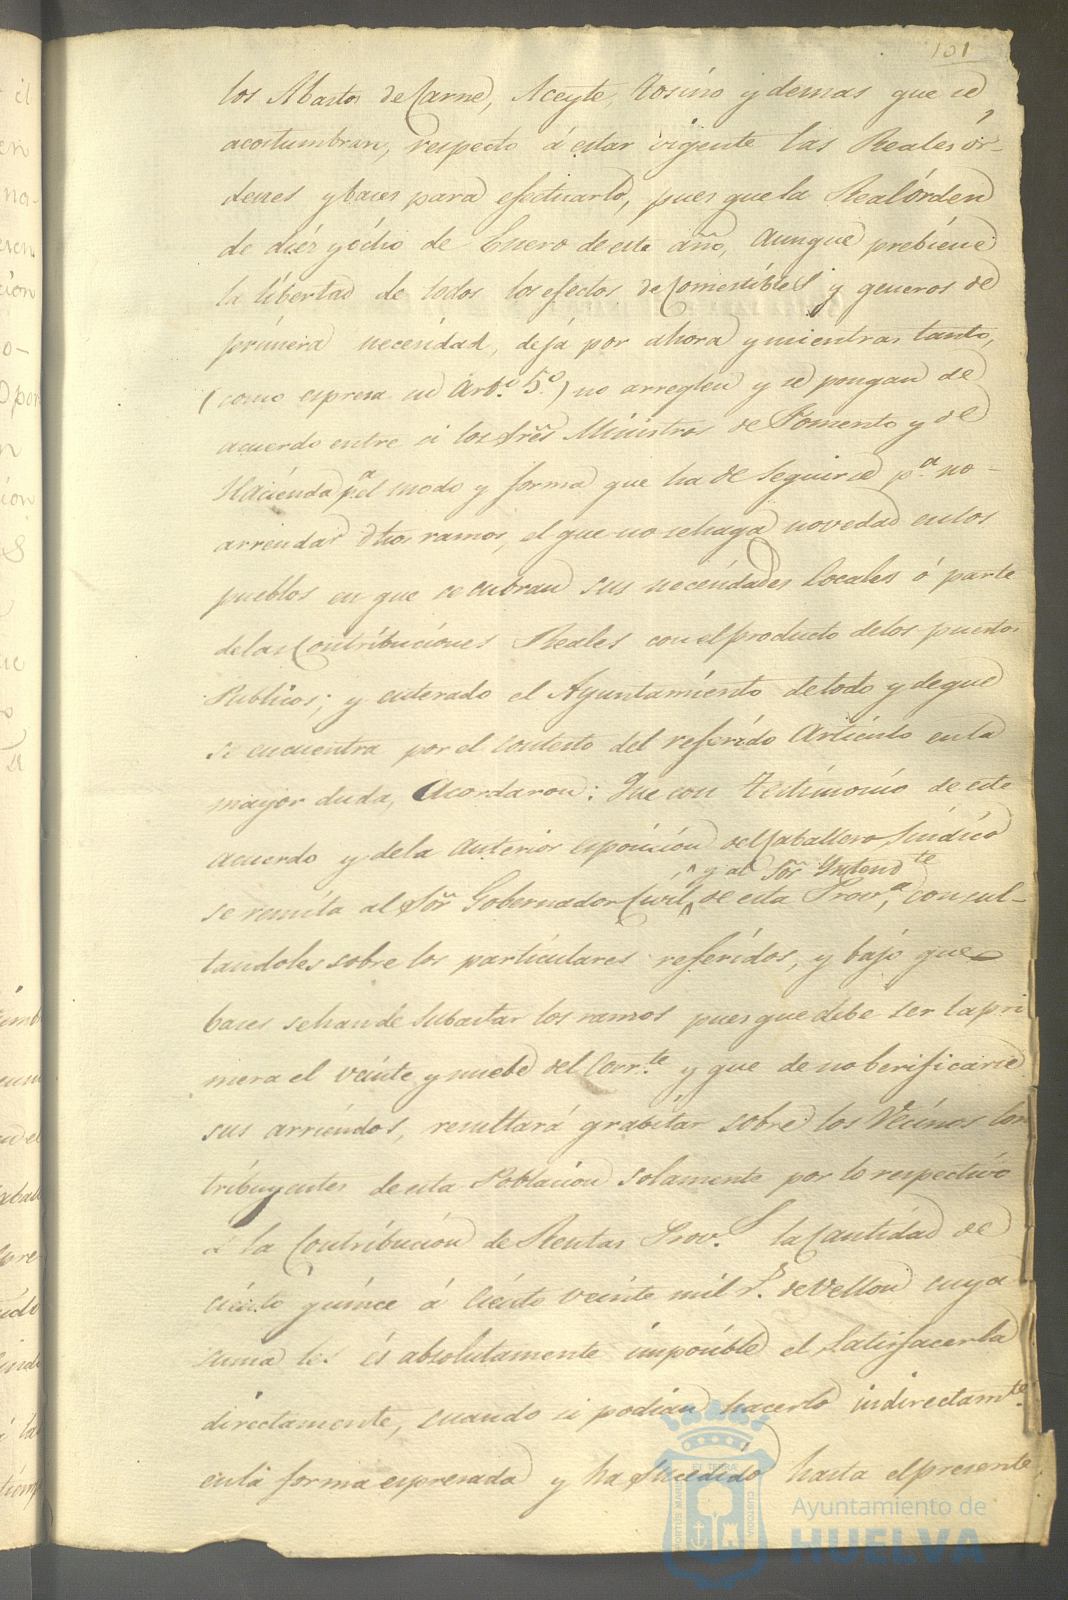 101
los Abastos de Carne, Aceyte, Tosino y demas que se
acostumbran, respecto á estar vigente las Reales ór-
denes y baces para efectuarlo, pues que la Real órden
de diéz y ócho de Enero de este año, aunque prebiene
la libertad de todos los efectos de Comestibles y generos de
primera necesidad, deja por ahora y mientras tanto,
(como espresa en Art.º 5.º) no arreglen y se pongan de
acuerdo entre si los Sres Ministros de Fomento y de
Hacienda p.ª el modo y forma que ha de seguirse p.ª no
arrendar dhos ramos, el que no se haga novedad en los
pueblos en que se cubran sus necesidades locales ó parte
de las Contribuciones Reales con el producto de los puestos
Publicos; y enterado el Ayuntamiento de todo y de que
se encuentra por el contesto del referido Articulo en la
mayor duda, Acordaron: Que con Testimonio de este
acuerdo y de la anterior esposicion del Caballero Sindico
y al Sor Intend.te
se remita al Sor Gobernador Civil de esta Prov.a, consul-
tandoles sobre los particulares referidos, y bajo que
baces se han de subastar los ramos pues que debe ser la pri
mera el veinte y nuebe del Corr.te y que de no berificarse
sus arriendos, resultará grabitar sobre los Vecinos Con
tribuyentes de esta Poblacion solamente por lo respectivo
á la Contribucion de Rentas Prov.s la Cantidad de
ciento quince á ciento veinte mil r.s de Vellon cuya
suma les és absolutamente imposible el satisfacerla
directamente, cuando si podian hacerlo indirectam.te
en la forma espresada y ha sucedido hasta el presente
PORTUS MARIS ET TERRÆ CUSTODIA
Ayuntamiento de
HUELVA